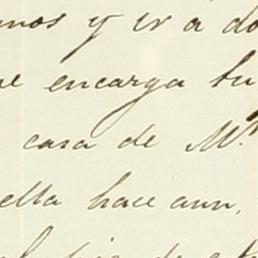 mos y ir a do
que encarga tu
casa de Mr.
ella hace aun,